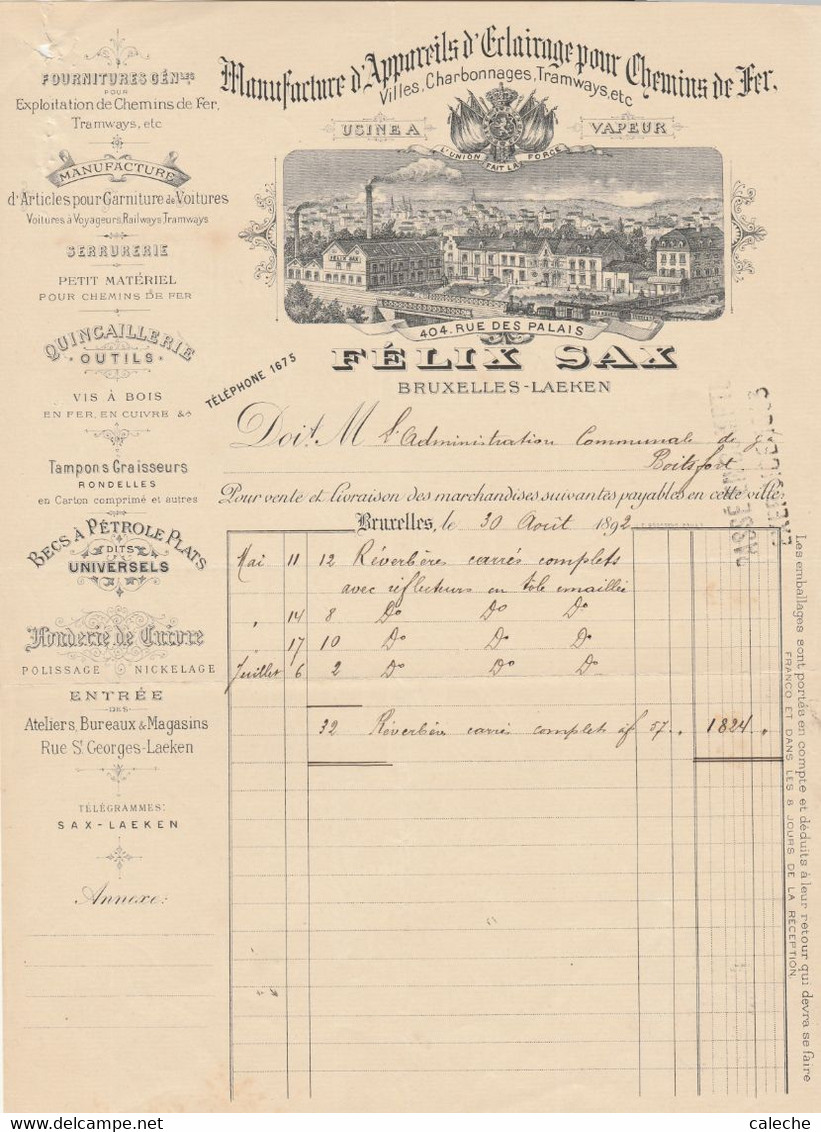 FOURNITURES GÉN.LES
POUR
Exploitation de Chemins de Fer,
Tramways, etc
MANUFACTURE
d'Articles pour Garniture de Voitures
Voitures à Voyageurs, Railways, Tramways
SERRURERIE
PETIT MATÉRIEL
POUR CHEMINS DE FER
QUINCAILLERIE
OUTILS
VIS À BOIS
EN FER, EN CUIVRE &
Tampons Graisseurs
RONDELLES
en Carton comprimé et autres
BECS À PÉTROLE PLATS
DITS
UNIVERSELS
Fonderie de Cuivre
POLISSAGE NICKELAGE
ENTRÉE
DES
Ateliers, Bureaux & Magasins
Rue St Georges-Laeken
TÉLÉGRAMMES:
SAX-LAEKEN
Annexe:
Manufacture d'Appareils d'Eclairage pour Chemins de Fer.
Villes, Charbonnages, Tramways, etc
USINE A VAPEUR
L'UNION FAIT LA FORCE
FÉLIX SAX
404. RUE DES PALAIS
FÉLIX SAX
TÉLÉPHONE 1675
BRUXELLES-LAEKEN
Doit M l'Administration Communale de
Boitsfort.
Pour vente et livraison des marchandises suivantes payables en cette ville
Bruxelles, le 30 Août 1892
Mai 11 12 Réverbères carrés complets
avec réflecteurs en tôle emaillée
" 14 8 Do Do Do
" 17 10 Do Do Do
Juillet 6 2 Do Do Do
32 Réverbère carrés complets à f 57. " 1824 "
PASSÉ
Les emballages sont portés en compte et déduits à leur retour qui devra se faire
FRANCO ET DANS LES 8 JOURS DE LA RÉCEPTION.
caleche